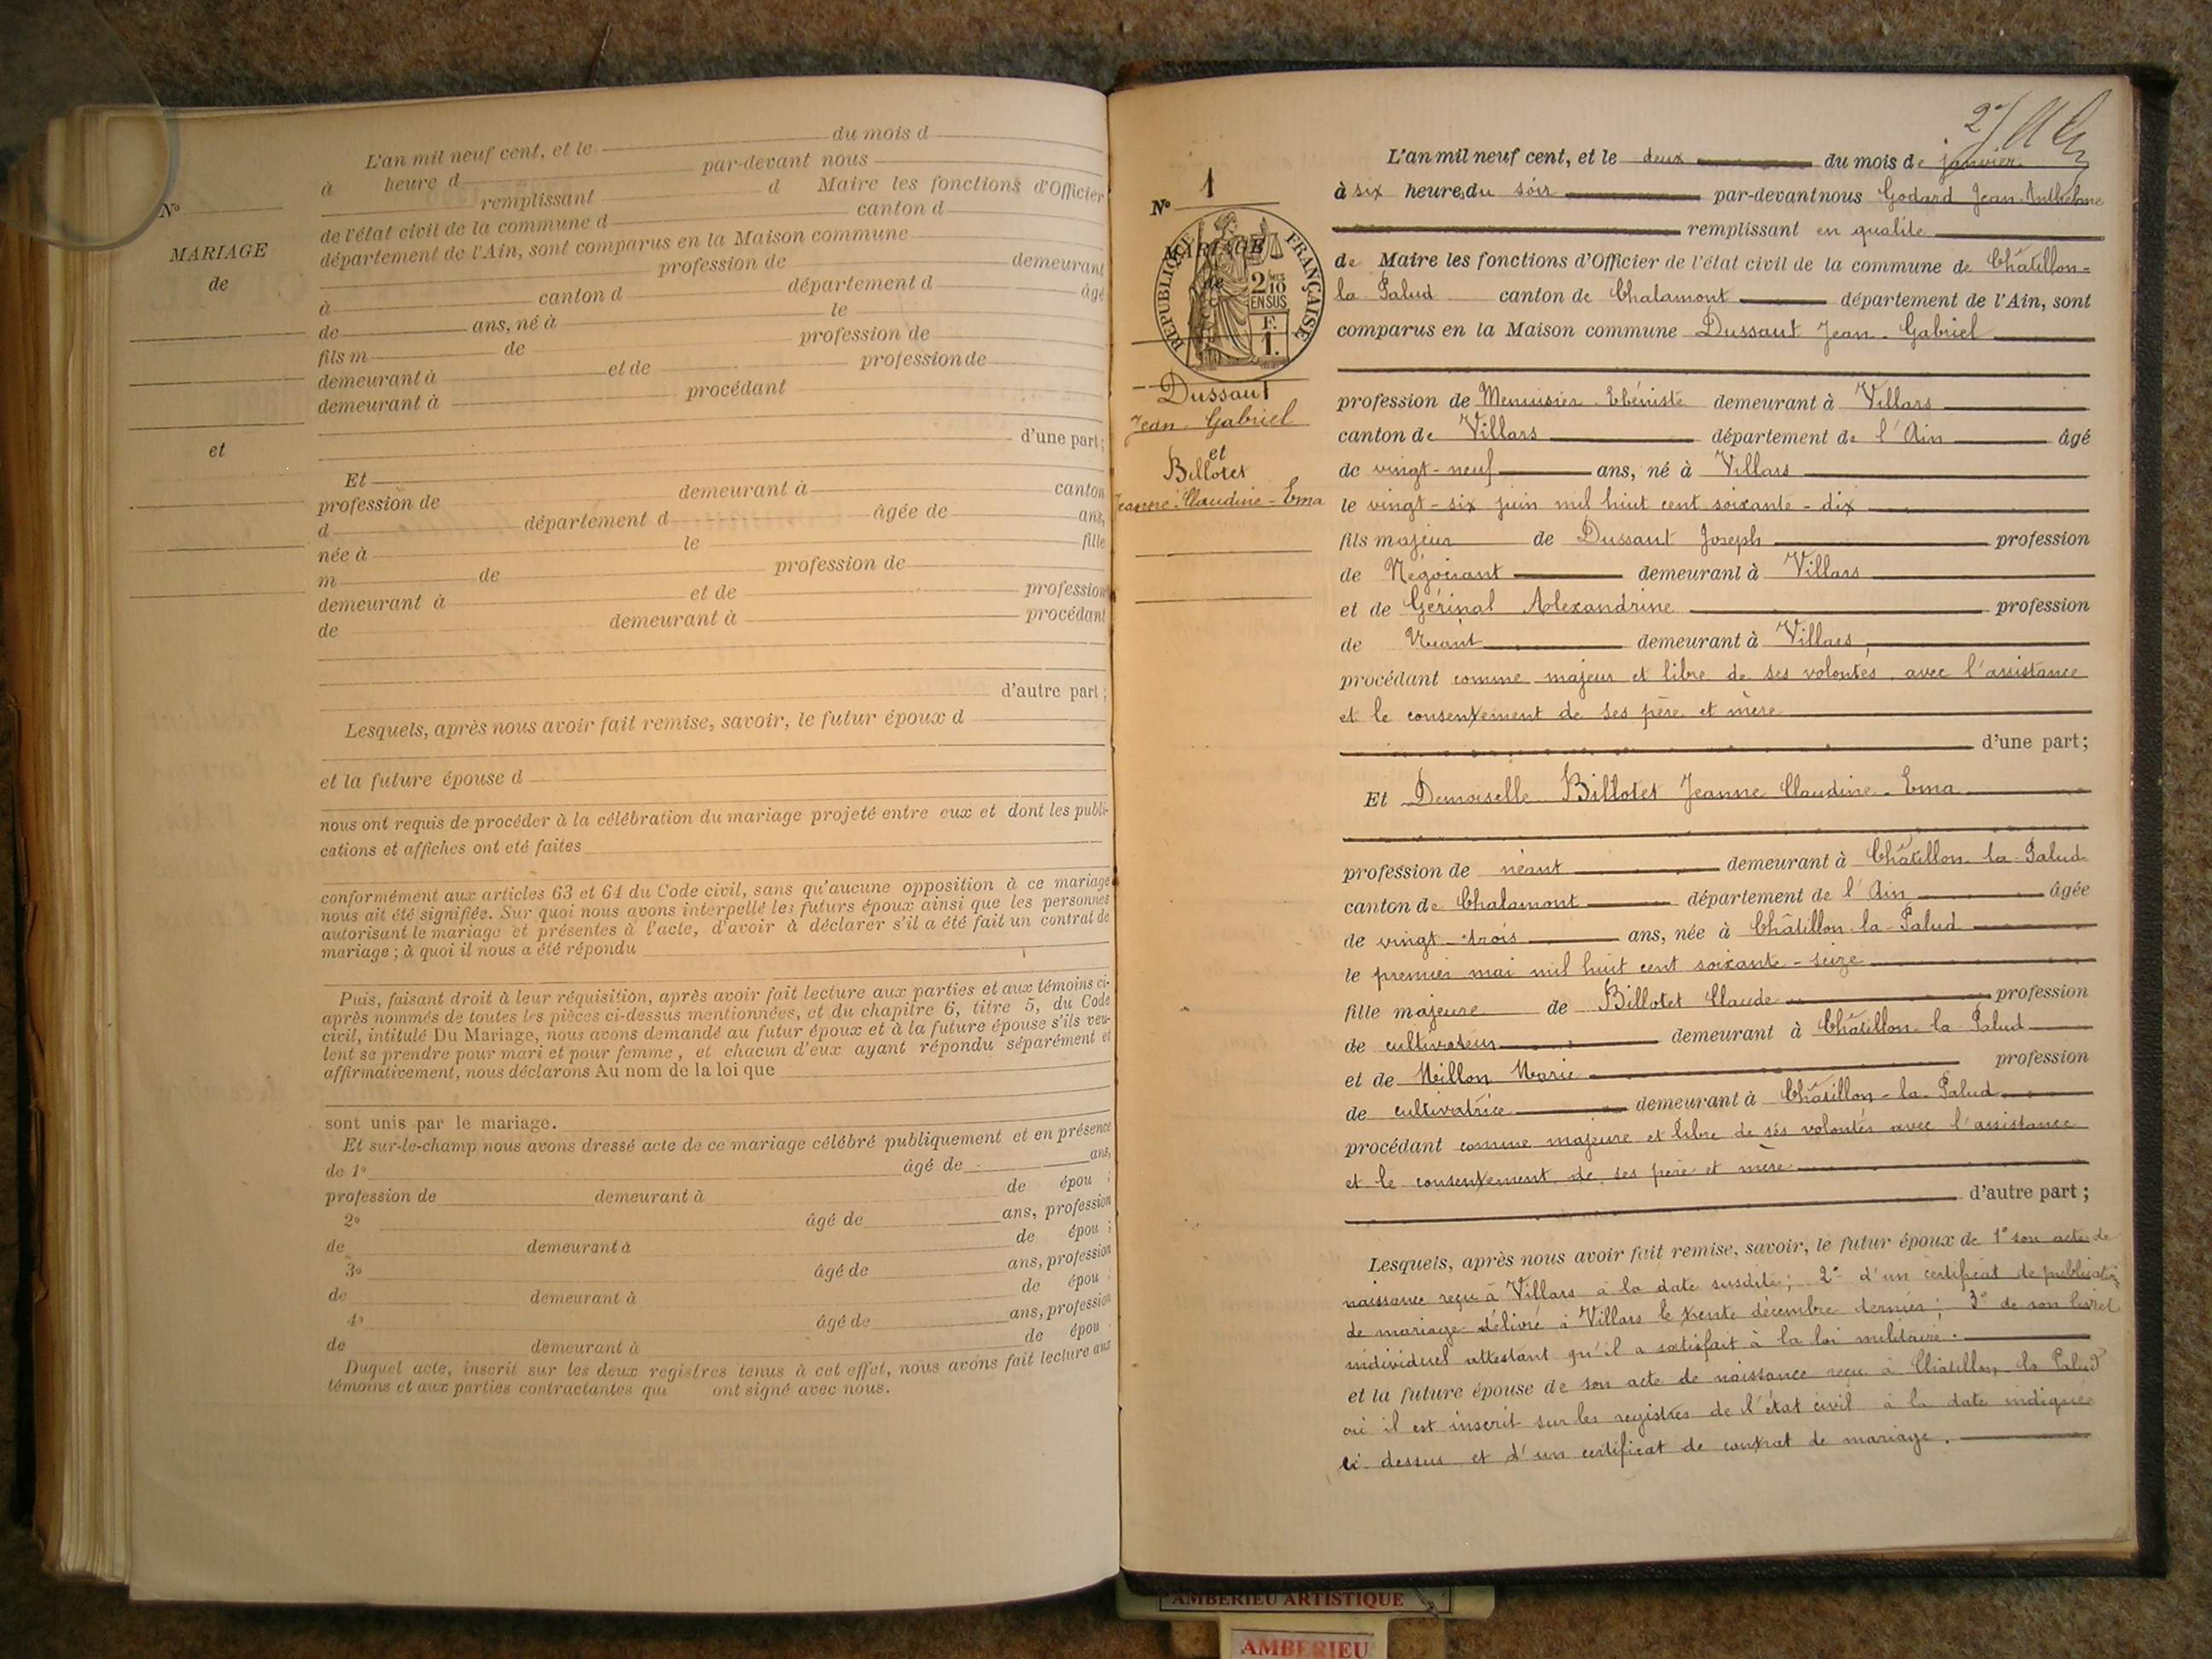 L'an mil neuf cent, et le du mois d
à heure d par-devant nous
remplissant d Maire les fonctions d'Officier
de l'état civil de la commune d canton d
département de l'Ain, sont comparus en la Maison commune
profession de demeurant
à canton d département d âgé
de ans, né à le
fils m de profession de
demeurant à et de profession de
demeurant à procédant
d'une part;
Et
profession de demeurant à canton
d département d âgée de ans,
née à le fille
m de profession de
demeurant à et de profession
de demeurant à procédant
d'autre part;
Lesquels, après nous avoir fait remise, savoir, le futur époux d
et la future épouse d
nous ont requis de procéder à la célébration du mariage projeté entre eux et dont les publi-
cations et affiches ont été faites
conformément aux articles 63 et 64 du Code civil, sans qu'aucune opposition à ce mariage
nous ait été signifiée. Sur quoi nous avons interpellé les futurs époux ainsi que les personnes
autorisant le mariage et présentes à l'acte, d'avoir à déclarer s'il a été fait un contrat de
mariage; à quoi il nous a été répondu
Puis, faisant droit à leur réquisition, après avoir fait lecture aux parties et aux témoins ci-
après nommés de toutes les pièces ci-dessus mentionnées, et du chapitre 6, titre 5, du Code
civil, intitulé Du Mariage, nous avons demandé au futur époux et à la future épouse s'ils veu-
lent se prendre pour mari et pour femme, et chacun d'eux ayant répondu séparément et
affirmativement, nous déclarons Au nom de la loi que
sont unis par le mariage.
Et sur-le-champ nous avons dressé acte de ce mariage célébré publiquement et en présence
de 1º âgé de ans,
profession de demeurant à de épou ;
2º âgé de ans, profession
de demeurant à de épou ;
3º âgé de ans, profession
de demeurant à de épou ;
4º âgé de ans, profession
de demeurant à de épou .
Duquel acte, inscrit sur les deux registres tenus à cet effet, nous avons fait lecture aux
témoins et aux parties contractantes qui ont signé avec nous.
Nº
MARIAGE
de
et
2e
Nº 1
MARIAGE
de
RÉPUBLIQUE FRANÇAISE
2/10 MES
EN SUS
F.
1.
Dussaut
Jean-Gabriel
et
Billotet
Jeanne-Claudine-Ema
L'an mil neuf cent, et le deux du mois de janvier
à six heures du soir par-devant nous Godard Jean-Anthelme
remplissant en qualité
de Maire les fonctions d'Officier de l'état civil de la commune de Châtillon-
la-Palud canton de Chalamont département de l'Ain, sont
comparus en la Maison commune Dussaut Jean-Gabriel
profession de Menuisier-Ebéniste demeurant à Villars
canton de Villars département de l'Ain âgé
de vingt-neuf ans, né à Villars
le vingt-six juin mil huit cent soixante-dix
fils majeur de Dussaut Joseph profession
de Négociant demeurant à Villars
et de Gérinal Alexandrine profession
de Néant demeurant à Villars,
procédant comme majeur et libre de ses volontés, avec l'assistance
et le consentement de ses père et mère
d'une part;
Et Demoiselle Billotet Jeanne Claudine-Ema
profession de néant demeurant à Châtillon-la-Palud
canton de Chalamont département de l'Ain âgée
de vingt-trois ans, née à Châtillon-la-Palud
le premier mai mil huit cent soixante-seize
fille majeure de Billotet Claude profession
de cultivateur demeurant à Châtillon-la-Palud
et de Millon Marie profession
de cultivatrice demeurant à Châtillon-la-Palud
procédant comme majeure et libre de ses volontés avec l'assistance
et le consentement de ses père et mère
d'autre part;
Lesquels, après nous avoir fait remise, savoir, le futur époux de 1º son acte de
naissance reçu à Villars à la date susdite; 2º d'un certificat de publication
de mariage délivré à Villars le trente décembre dernier; 3º de son livret
individuel attestant qu'il a satisfait à la loi militaire.
et la future épouse de son acte de naissance reçu à Châtillon-la-Palud
où il est inscrit sur les registres de l'état civil à la date indiquée
ci-dessus et d'un certificat de contrat de mariage.
AMBERIEU ARTISTIQUE
AMBERIEU